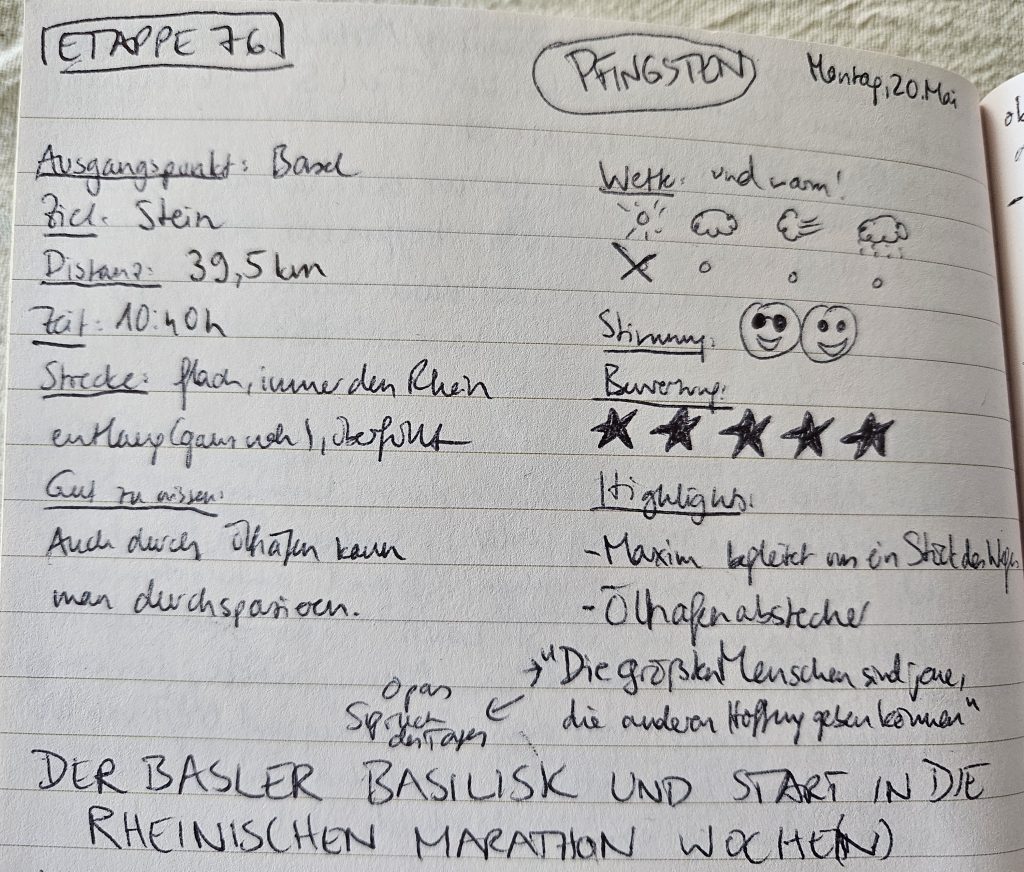 ETAPPE 76
PFINGSTEN
Montag, 20. Mai
Ausgangspunkt: Basel
Ziel: Stein
Distanz: 39,5 km
Zeit: 10:40h
Strecke: flach, immer den Rhein
entlang (ganz nah), überfüllt
Gut zu wissen:
Auch durch Ölhäfen kann
man durchspazieren.
Wetter: und warm!
Stimmung:
Bewertung:
Highlights:
- Maxim begleitet uns ein Stück des Weges
- Ölhafenabstecher
→ "Die größten Menschen sind jene,
die anderen Hoffnung geben können"
Opas
Spruch
des Tages
DER BASLER BASILISK UND START IN DIE
RHEINISCHEN MARATHON WOCHE(N)